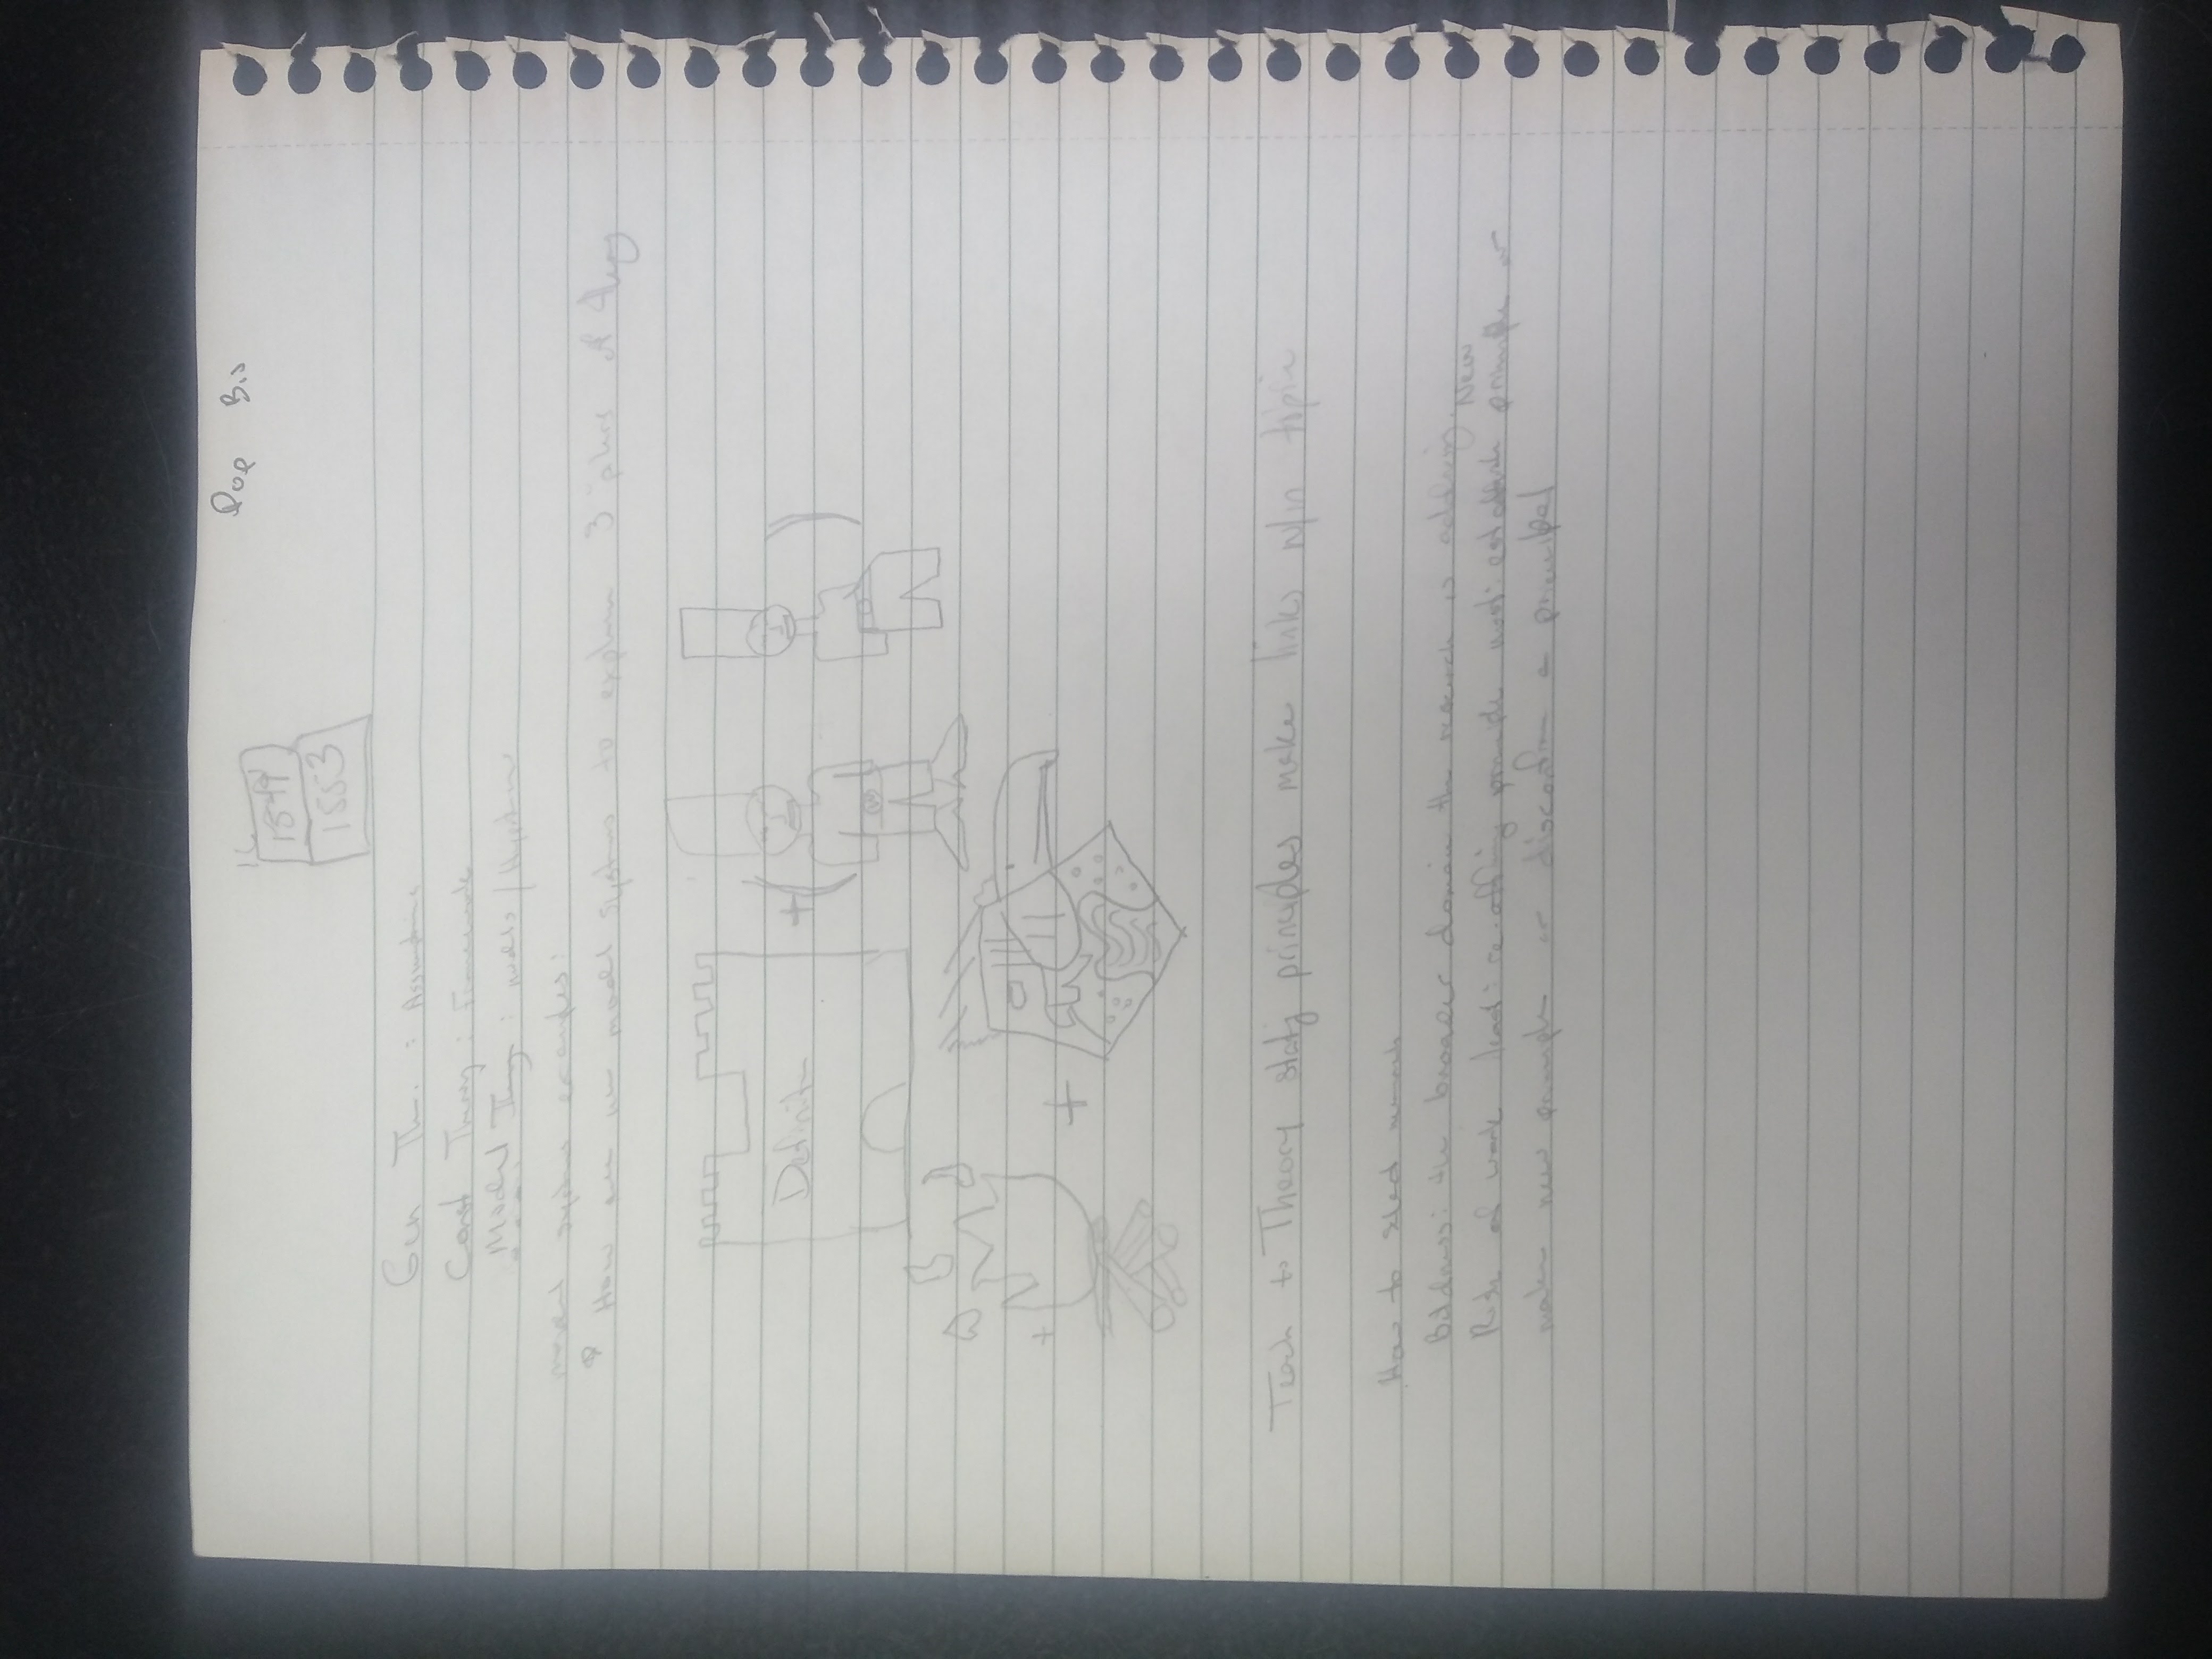 Pop Bio
16
1549
1553
Gen Th. : Assumptions
Const Theory : Framework
Model Theory : models / Hypotheses
model systems examples:
How are model systems to explain 3 of theory
Definit
+
+
+
Teach to Theory stating principles make links w/in topic
How to
Boldness: the broader domain the research is addressing.
New
Risk of work least: re-affirming principle most: establish principle or
make new principle or disconfirm a principal